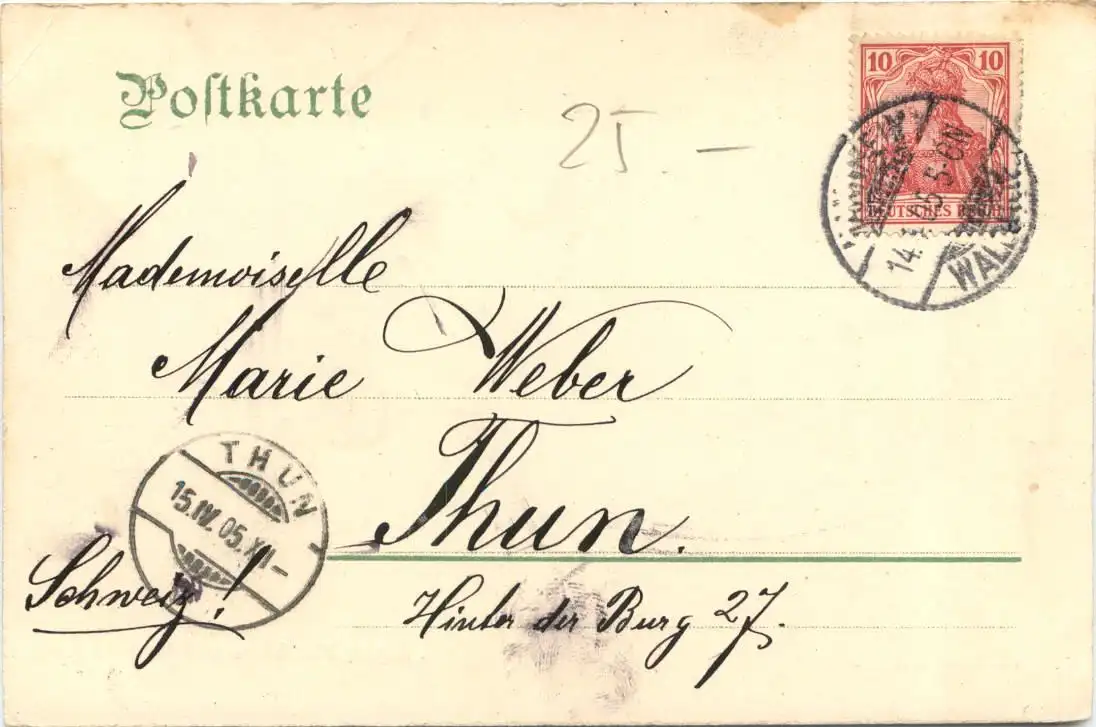 Postkarte
25 –
10 10
DEUTSCHES REICH
14. 05 5-6N
WAL
Mademoiselle
Marie Weber
Thun.
THUN
15.IV.05.XI–
Schweiz!
Hinter der Burg 27.